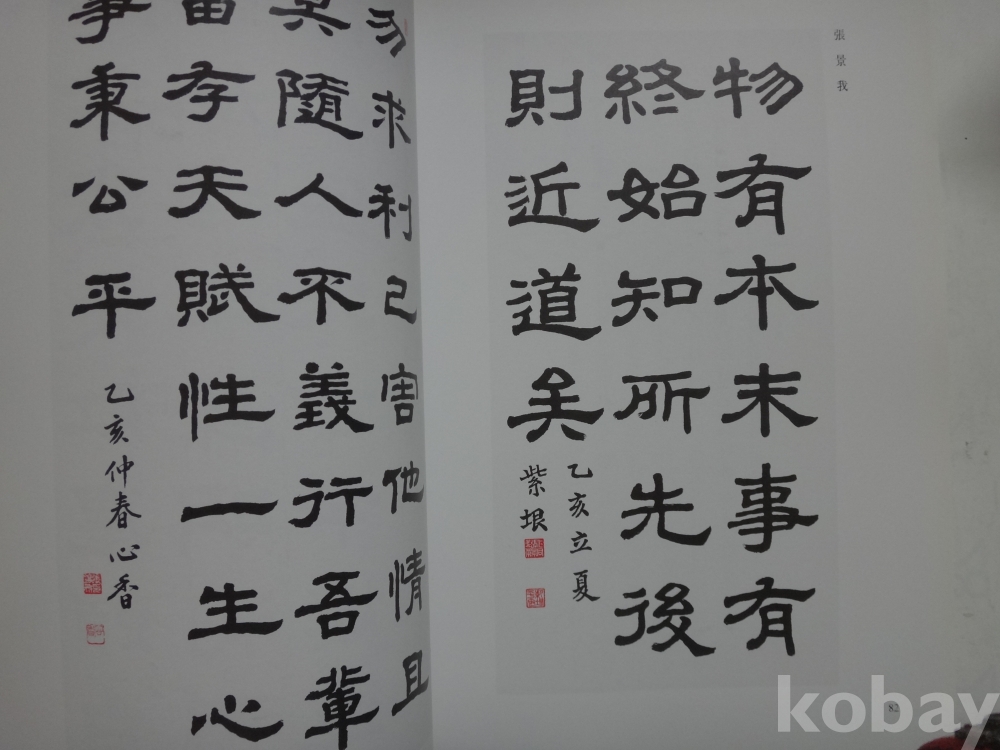 張景我
物有本末事有
終始知所先後
則近道矣
乙亥立夏
紫垠
勿求利己害他情且
隨人不義行吾輩
存天賦性一生心
秉公平
乙亥仲春心香
kobay